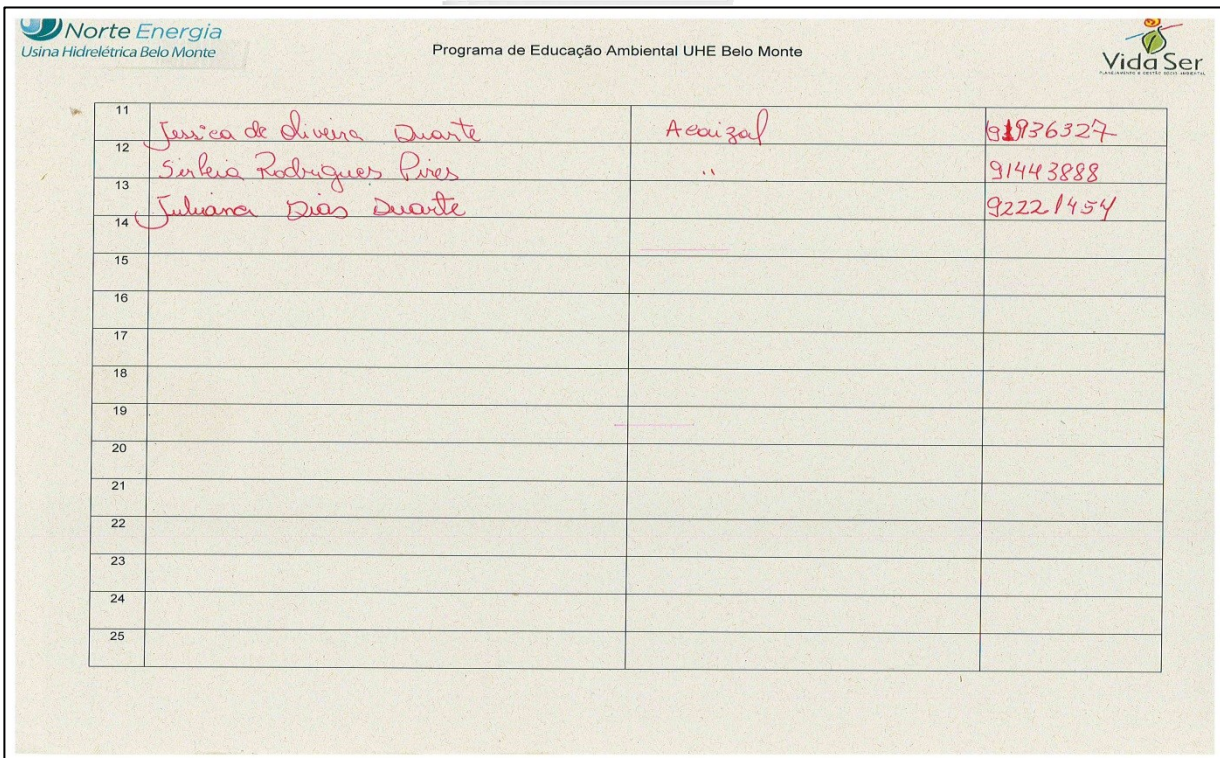 Norte Energia
Usina Hidrelétrica Belo Monte
Programa de Educação Ambiental UHE Belo Monte
Vida Ser
11 Jessica de Oliveira Duarte Acaizal 91936327
12 Sirleia Rodrigues Pires " 91443888
13 Juliana Dias Duarte 92221454
14
15
16
17
18
19
20
21
22
23
24
25